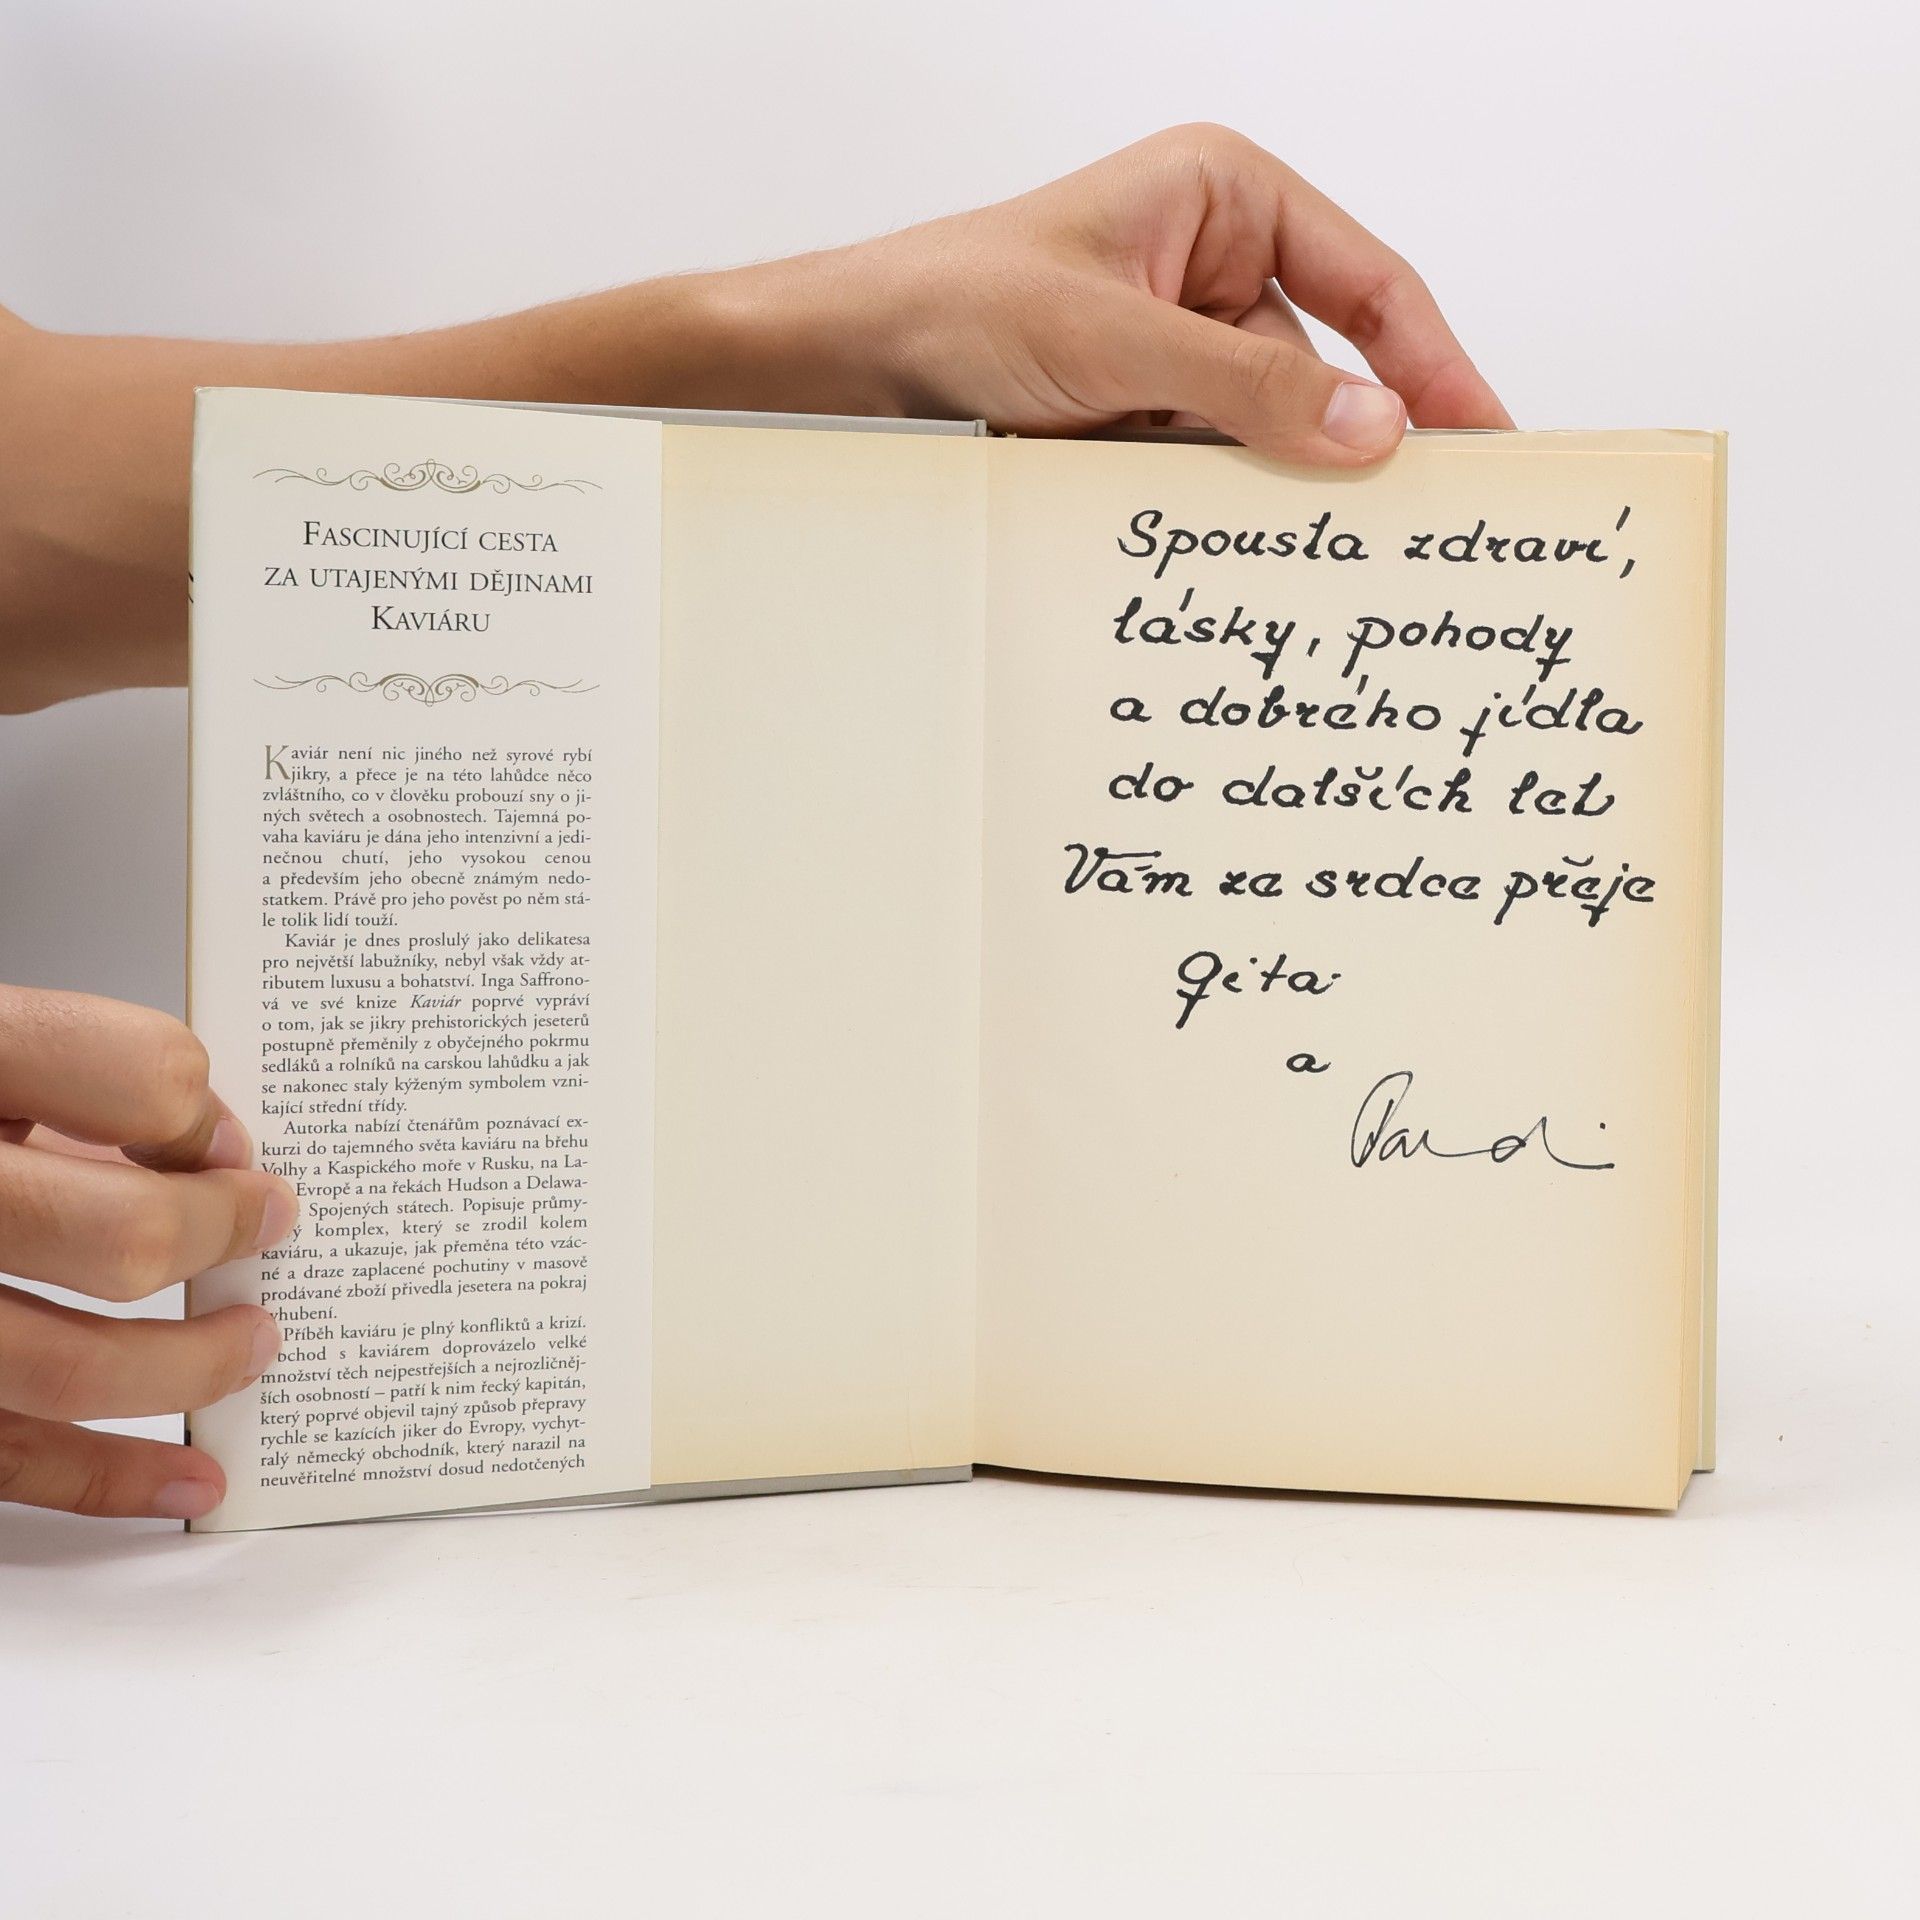 FASCINUJÍCÍ CESTA
ZA UTAJENÝMI DĚJINAMI
KAVIÁRU
Kaviár není nic jiného než syrové rybí
jikry, a přece je na této lahůdce něco
zvláštního, co v člověku probouzí sny o ji-
ných světech a osobnostech. Tajemná po-
vaha kaviáru je dána jeho intenzivní a jedi-
nečnou chutí, jeho vysokou cenou
a především jeho obecně známým nedo-
statkem. Právě pro jeho pověst po něm stá-
le tolik lidí touží.
Kaviár je dnes proslulý jako delikatesa
pro největší labužníky, nebyl však vždy at-
ributem luxusu a bohatství. Inga Saffrono-
vá ve své knize Kaviár poprvé vypráví
o tom, jak se jikry prehistorických jeseterů
postupně přeměnily z obyčejného pokrmu
sedláků a rolníků na carskou lahůdku a jak
se nakonec staly kýženým symbolem vzni-
kající střední třídy.
Autorka nabízí čtenářům poznávací ex-
kurzi do tajemného světa kaviáru na břehu
Volhy a Kaspického moře v Rusku, na La-
Evropě a na řekách Hudson a Delawa-
Spojených státech. Popisuje průmy-
ý komplex, který se zrodil kolem
kaviáru, a ukazuje, jak přeměna této vzác-
né a draze zaplacené pochutiny v masově
prodávané zboží přivedla jesetera na pokraj
vyhubení.
Příběh kaviáru je plný konfliktů a krizí.
bchod s kaviárem doprovázelo velké
množství těch nejpestřejších a nejrozličněj-
ších osobností – patří k nim řecký kapitán,
který poprvé objevil tajný způsob přepravy
rychle se kazících jiker do Evropy, vychyt-
ralý německý obchodník, který narazil na
neuvěřitelné množství dosud nedotčených
Spousta zdraví,
lásky, pohody
a dobrého jídla
do dalších let
Vám ze srdce přeje
Gita
a